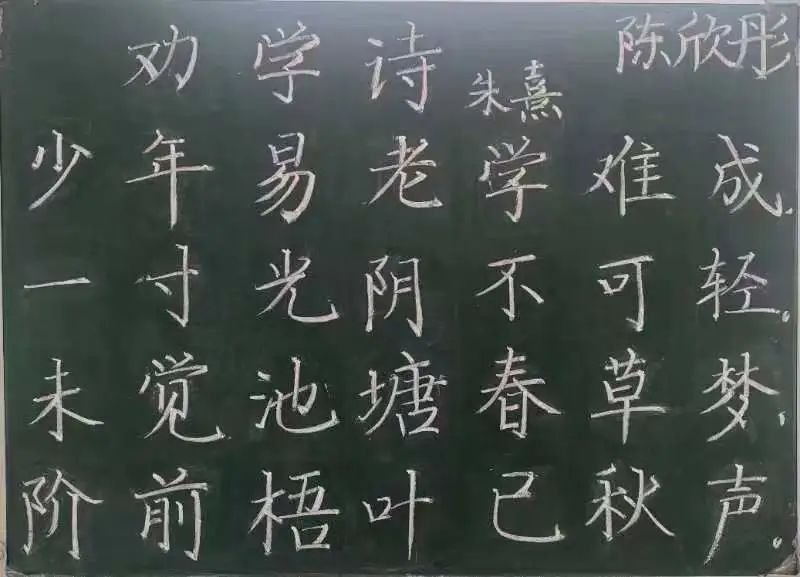 劝学诗 朱熹 陈欣彤
少年易老学难成,
一寸光阴不可轻。
未觉池塘春草梦,
阶前梧叶已秋声。